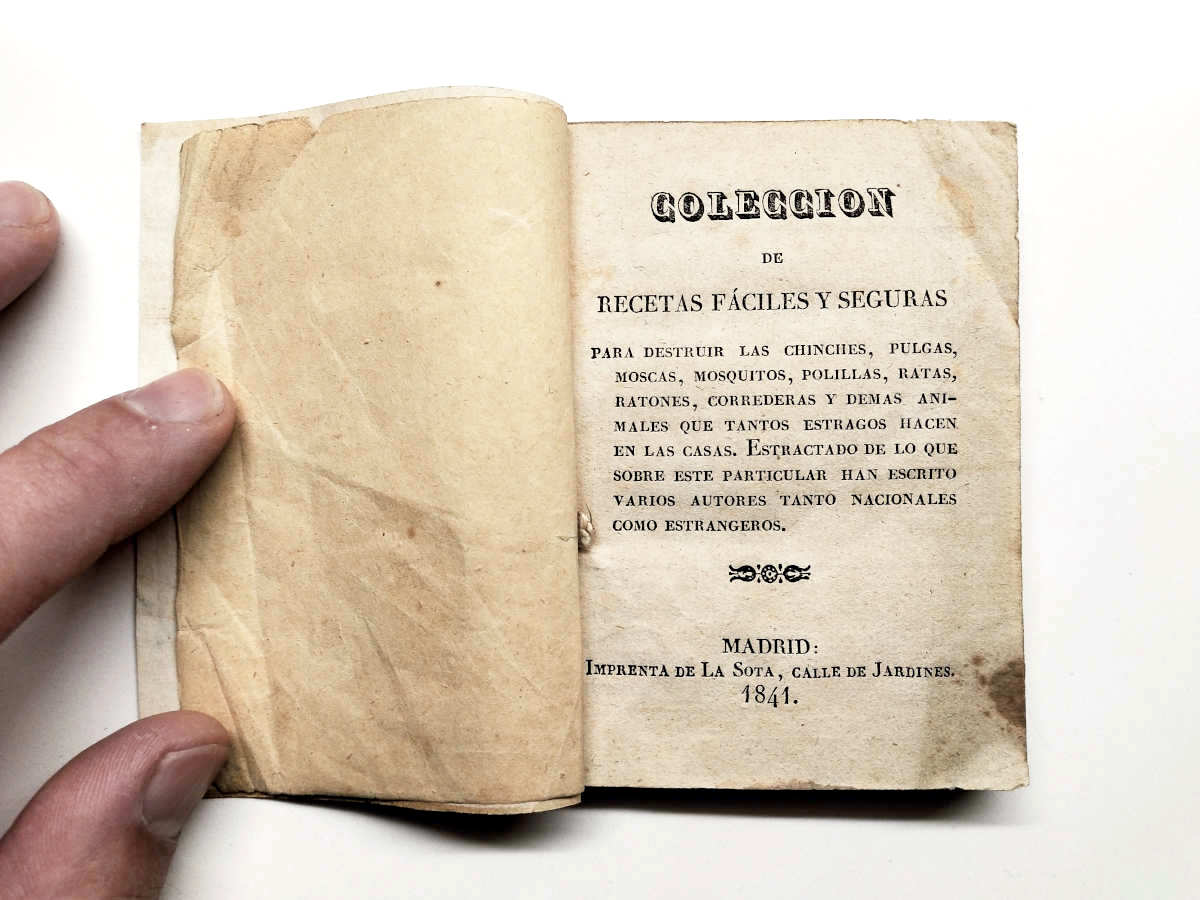 COLECCION
DE
RECETAS FÁCILES Y SEGURAS
PARA DESTRUIR LAS CHINCHES, PULGAS,
MOSCAS, MOSQUITOS, POLILLAS, RATAS,
RATONES, CORREDERAS Y DEMAS ANI-
MALES QUE TANTOS ESTRAGOS HACEN
EN LAS CASAS. ESTRACTADO DE LO QUE
SOBRE ESTE PARTICULAR HAN ESCRITO
VARIOS AUTORES TANTO NACIONALES
COMO ESTRANGEROS.
MADRID:
IMPRENTA DE LA SOTA, CALLE DE JARDINES.
1841.